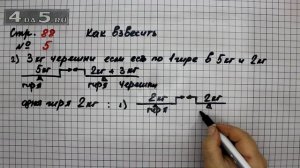 4DS.RU
Стр. 88 Как взвесить
№ 5
2) 3 кг черешни если есть по 1 гире в 5 кг и 2 кг
5 кг 2 кг + 3 кг
гиря гиря черешни
одна гиря 2 кг : 1) 2 кг 2 кг
гиря